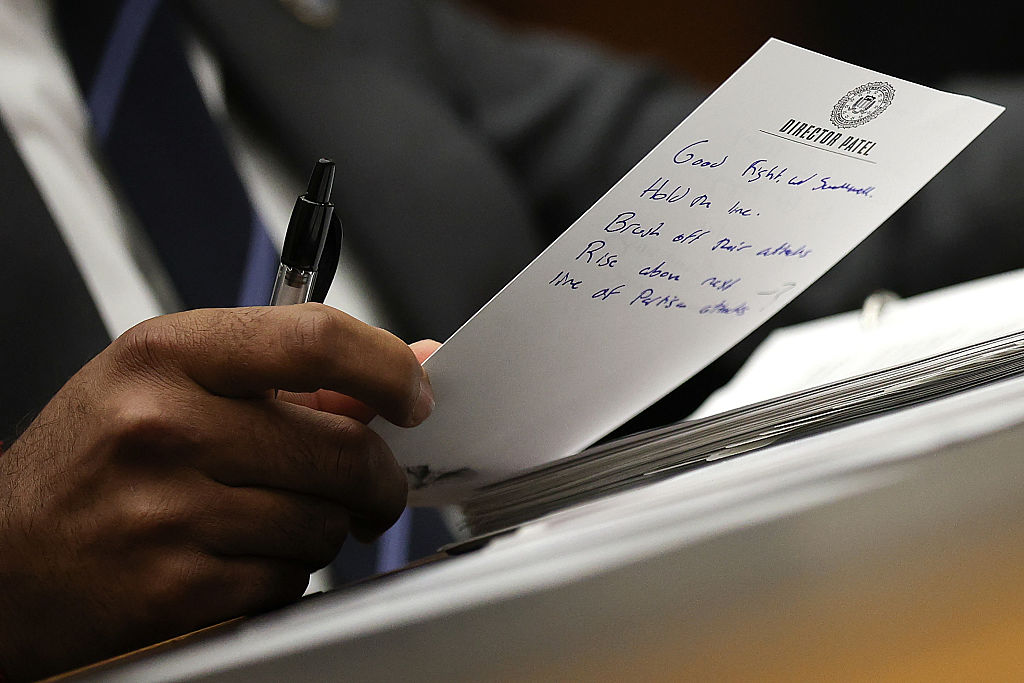 DIRECTOR PATEL
Good Fight, w/ Swalwell.
Hold the line.
Brush off their attacks
Rise above next
line of Partisan attacks.